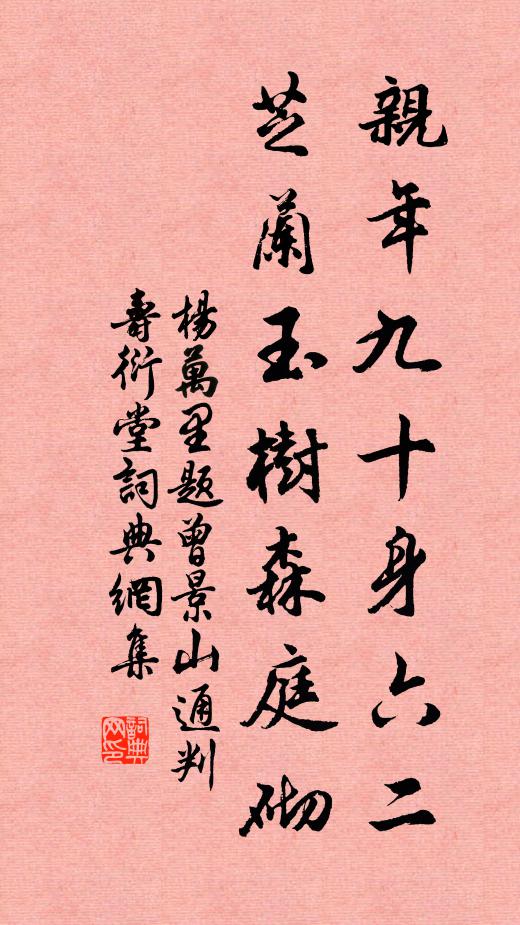 親年九十身六二
芝蘭玉樹森庭砌
楊萬里題曾景山通判
壽衍堂詞典網集
詞典网印